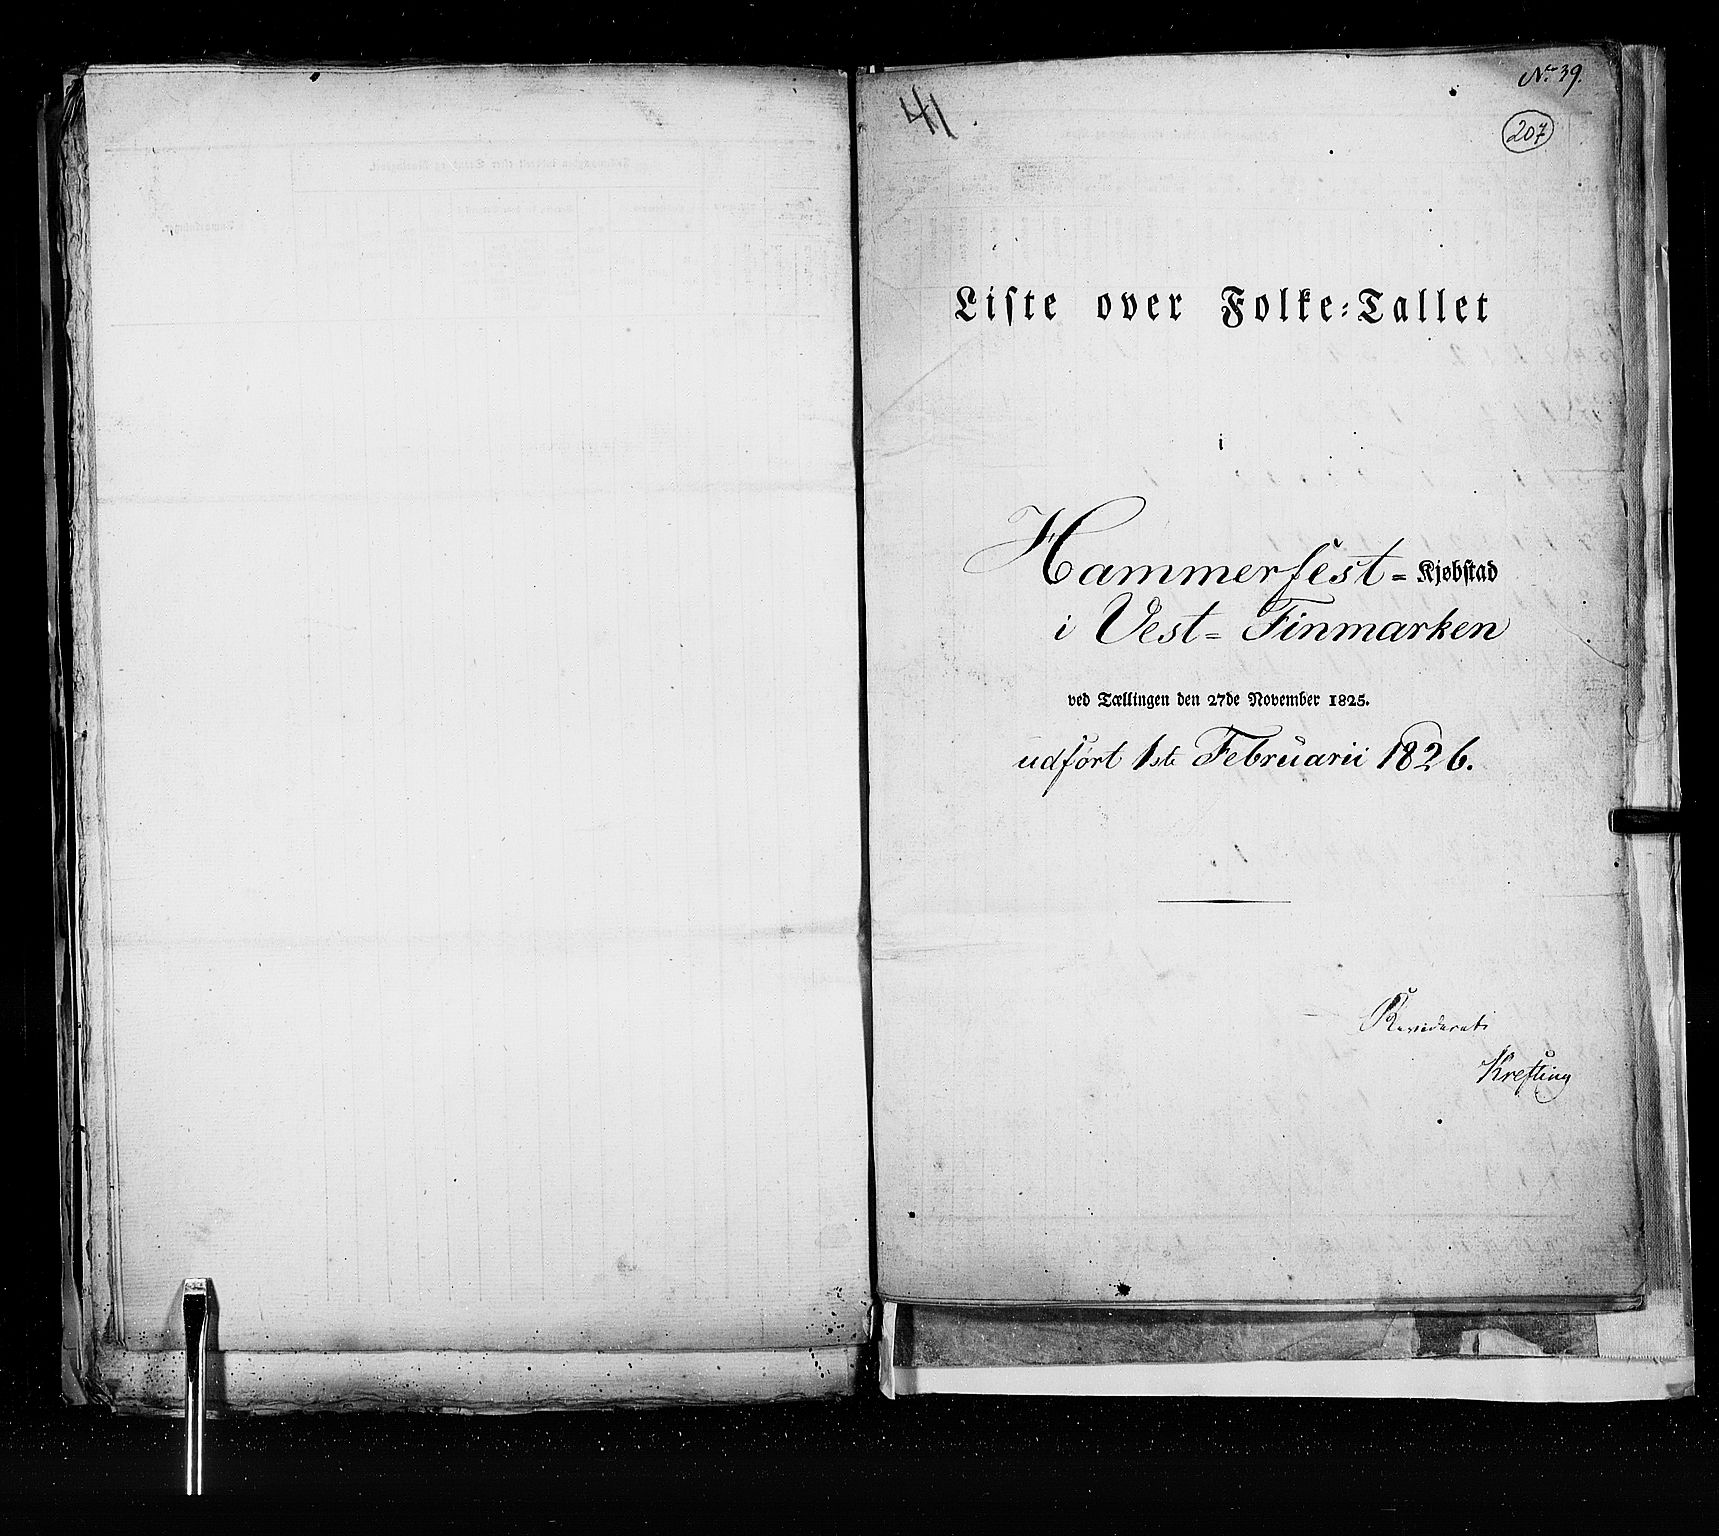 No. 39.
41
207
Liste over Folke-Tallet
i
Hammerfest- Kjøbstad
i Vest- Finmarken
ved Tællingen den 27de November 1825.
udført 1ste Februarii 1826.
Revideret
Krefting